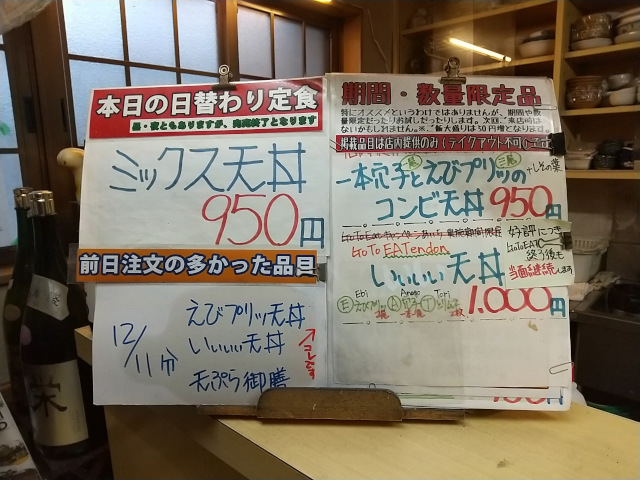 本日の日替わり定食
昼・夜ともありますが、完売終了となります
ミックス天丼
950円
前日注文の多かった品目
12/11分
えびプリッ天丼
いいいい天丼
天ぷら御膳
コレです
期間・数量限定品
特にオススメというわけではありませんが、期間や数
量限定だったりお試しだったりします。次回、ご来店時は
ないかもしれません。※ご飯大盛りは50円増となります。
掲載品目は店内提供のみ(テイクアウト不可)
一本穴子とえびプリッの
+しその葉
コンビ天丼 950円
GoTo EATendon
いいいい天丼
1.000円
好評につき
GoToEAT
終了後も
当面継続します
Ebi
Anago
Tori
E えびプリッ
A 穴子
T とり
栄